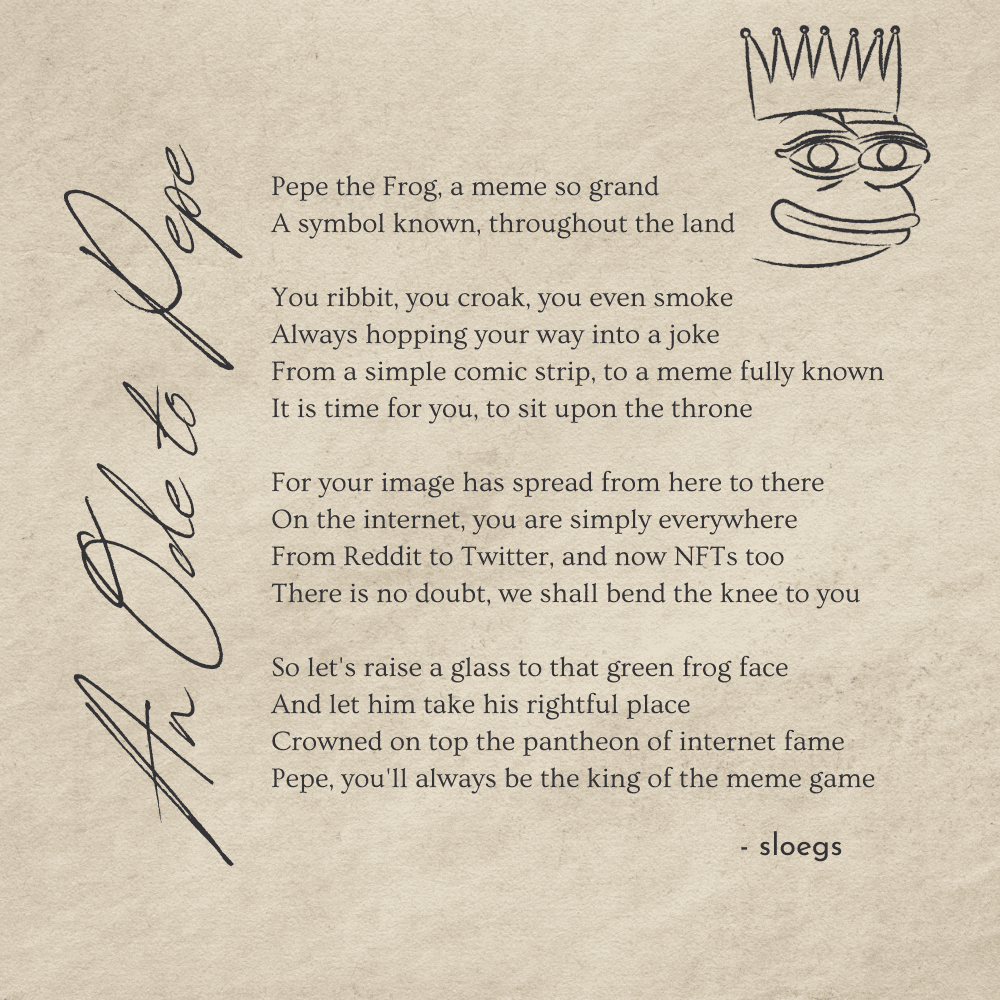 An Ode to Pepe
Pepe the Frog, a meme so grand
A symbol known, throughout the land
You ribbit, you croak, you even smoke
Always hopping your way into a joke
From a simple comic strip, to a meme fully known
It is time for you, to sit upon the throne
For your image has spread from here to there
On the internet, you are simply everywhere
From Reddit to Twitter, and now NFTs too
There is no doubt, we shall bend the knee to you
So let's raise a glass to that green frog face
And let him take his rightful place
Crowned on top the pantheon of internet fame
Pepe, you'll always be the king of the meme game
- sloegs